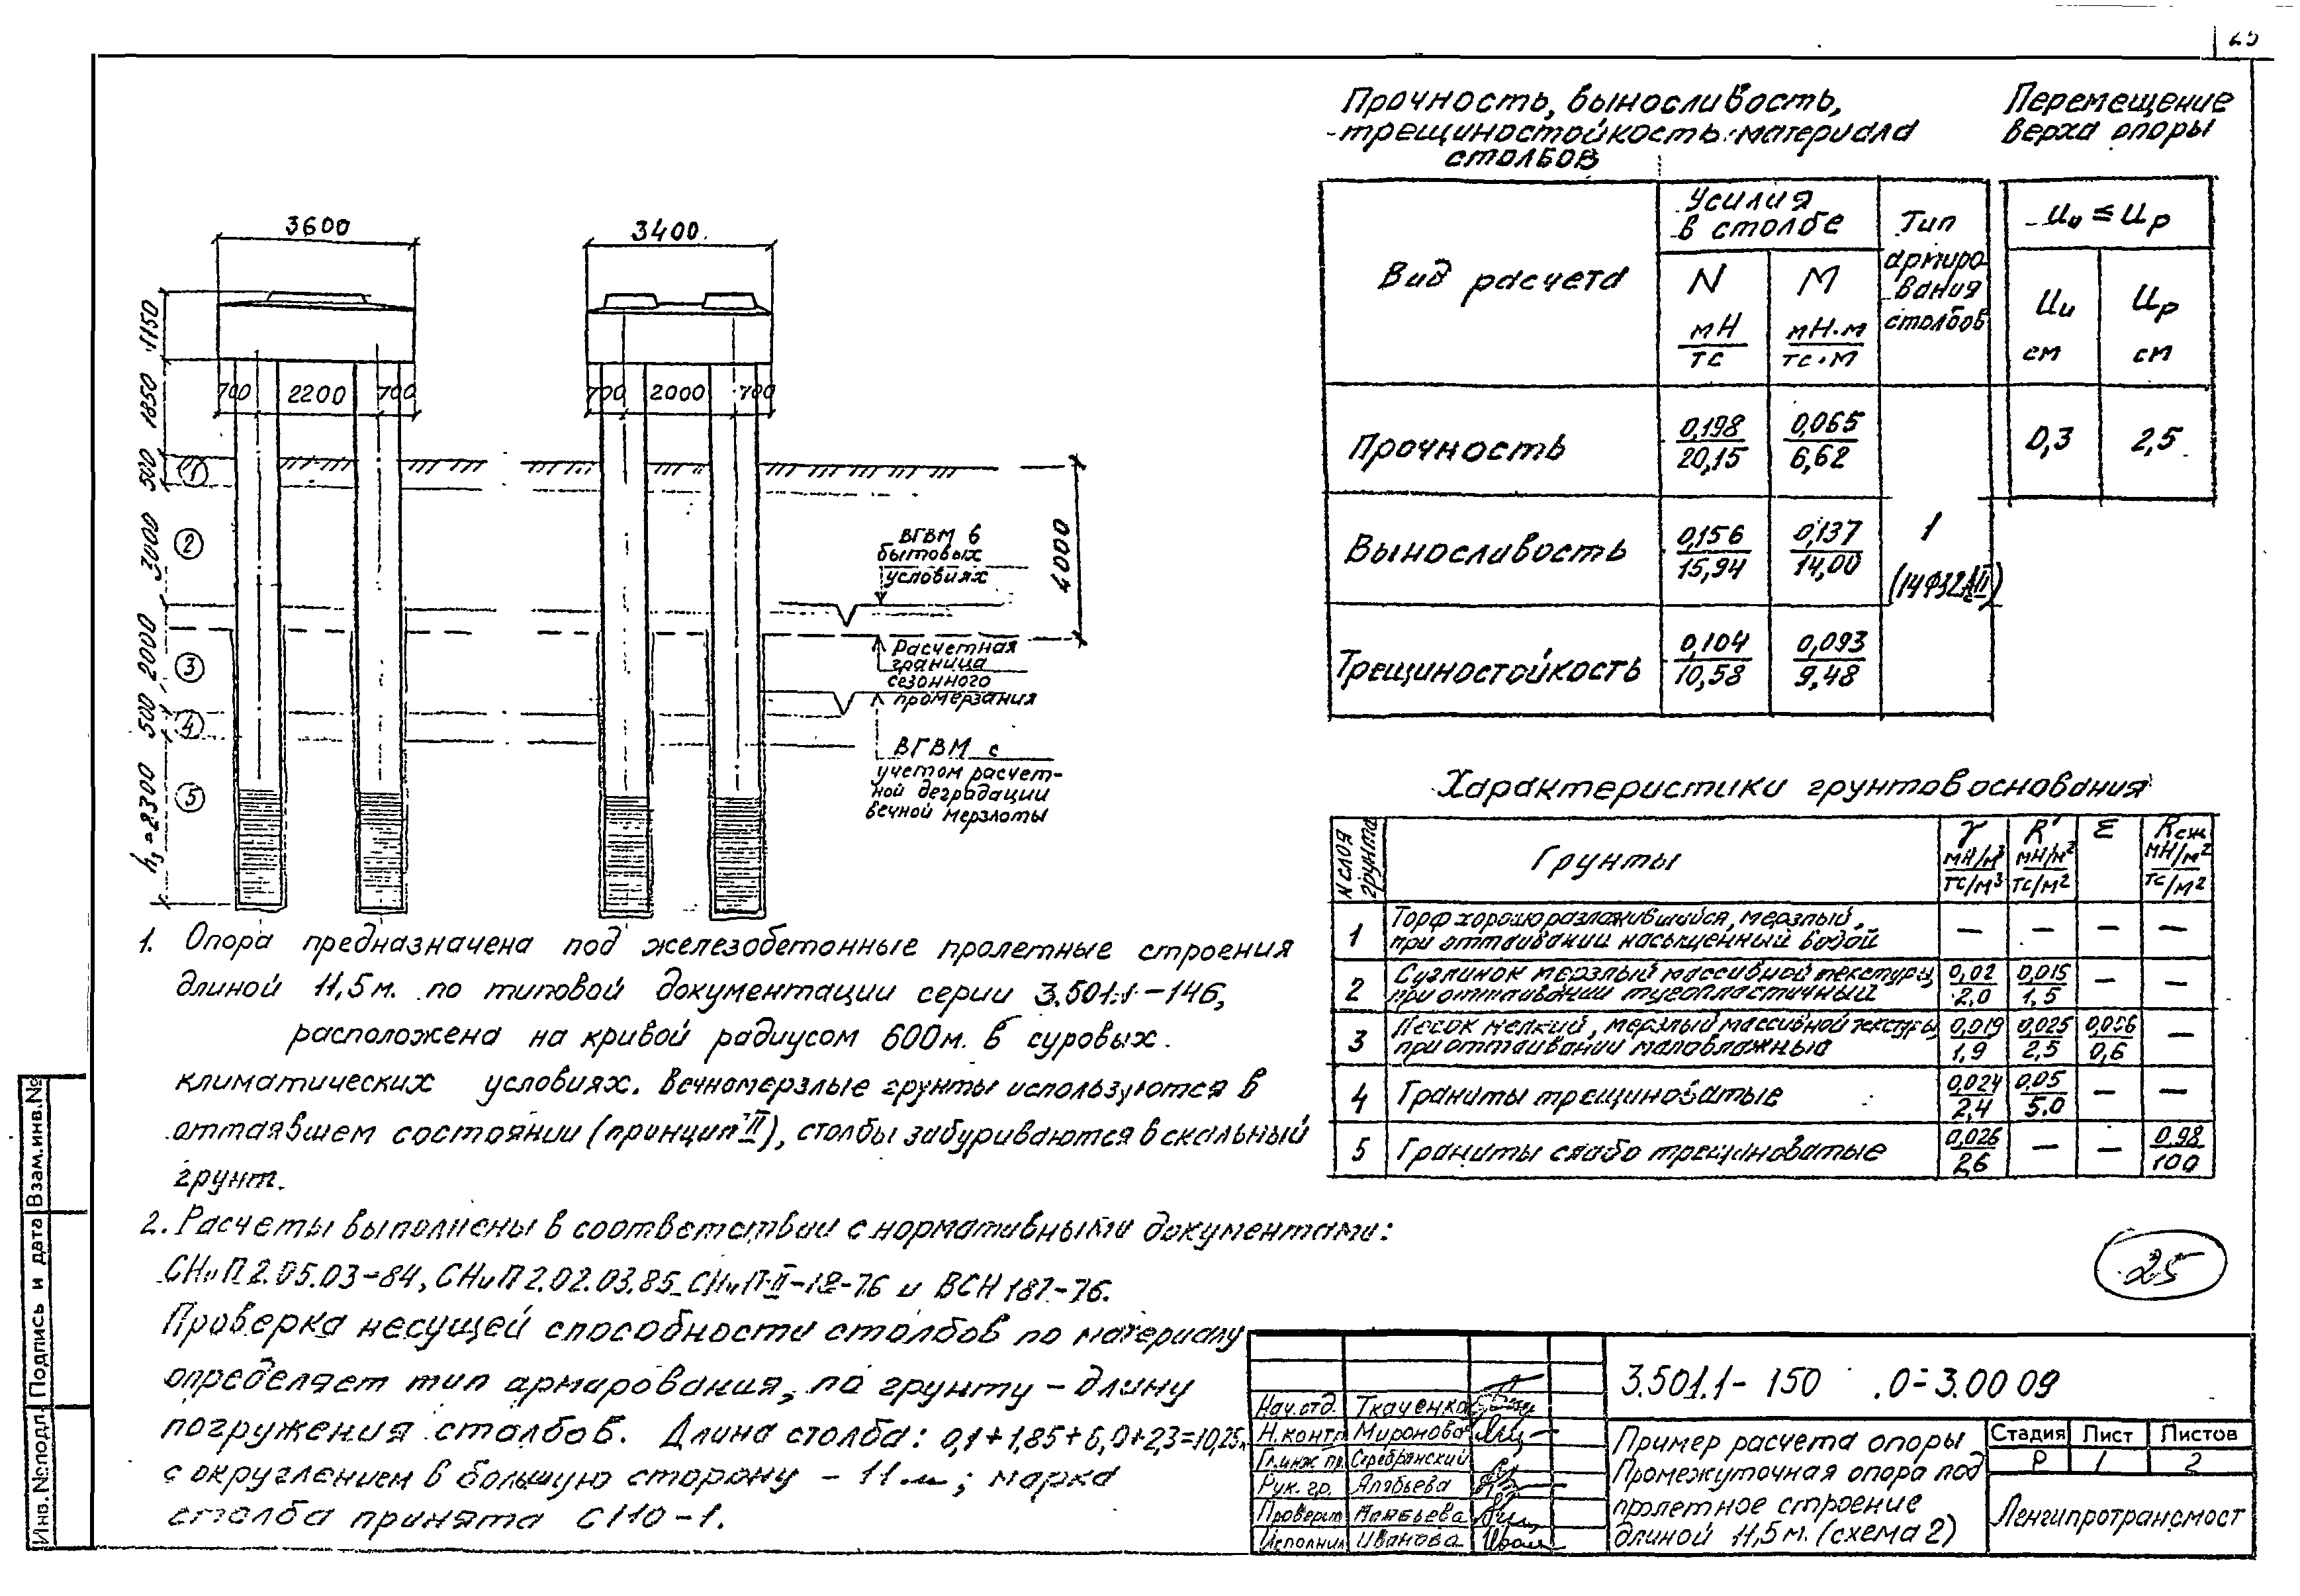 25
3600
3400
1150
1850
500
3000
2000
500
h₃=2300
700 2200 700
700 2000 700
4000
1
2
3
4
5
ВГВМ в
бытовых
условиях
Расчетная
граница
сезонного
промерзания
ВГВМ с
учетом расчет-
ной деградации
вечной мерзлоты
Прочность, выносливость,
трещиностойкость материала
столбов
Вид расчета
Усилия
в столбе
N
мН
тс
М
мН·м
тс·м
Тип
армиро-
вания
столбов
Прочность 0,198 0,065
20,15 6,62
Выносливость 0,156 0,137
15,94 14,00
Трещиностойкость 0,104 0,093
10,58 9,48
1
(14Ф32АII)
Перемещение
верха опоры
Uи ≤ Uр
Uи Uр
см см
0,3 2,5
Характеристики грунтов основания
N слоя
грунта
Грунты
γ R' ε Rсж
МН/м³ МН/м² МН/м²
тс/м³ тс/м² тс/м²
1 Торф хорошо разложившийся, мерзлый, — — — —
при оттаивании насыщенный водой
2 Суглинок мерзлый массивной текстуры, 0,02 0,015 — —
при оттаивании тугопластичный 2,0 1,5
3 Песок мелкий, мерзлый массивной текстуры, 0,019 0,025 0,006 —
при оттаивании маловлажный 1,9 2,5 0,6
4 Граниты трещиноватые 0,024 0,05 — —
2,4 5.0
5 Граниты слабо трещиноватые 0,026 — — 0,98
2,6 100
1. Опора предназначена под железобетонные пролетные строения
длиной 11,5м. по типовой документации серии 3.501.1-146,
расположена на кривой радиусом 600м. в суровых
климатических условиях. Вечномерзлые грунты используются в
оттаявшем состоянии (принцип II), столбы забуриваются в скальный
грунт.
2. Расчеты выполнены в соответствии с нормативными документами:
СНиП 2.05.03-84, СНиП 2.02.03.85 СНиП II-18-76 и ВСН 187-76.
Проверка несущей способности столбов по материалу
определяет тип армирования, по грунту - длину
погружения столбов. Длина столба: 0,1+1,85+6,0+2,3=10,25м
с округлением в большую сторону - 11м; марка
столба принята С110-1.
25
Инв.№подл. Подпись и дата Взам.инв.№
Нач.отд. Ткаченко
Н.контр. Миронова
Гл.инж.пр. Серебрянский
Рук.гр. Алябьева
Проверил Алябьева
Исполнил Иванова
3.501.1-150 .0-3.00 09
Пример расчета опоры
Промежуточная опора под
пролетное строение
длиной 11,5м. (схема 2)
Стадия Лист Листов
Р 1 2
Ленгипротрансмост